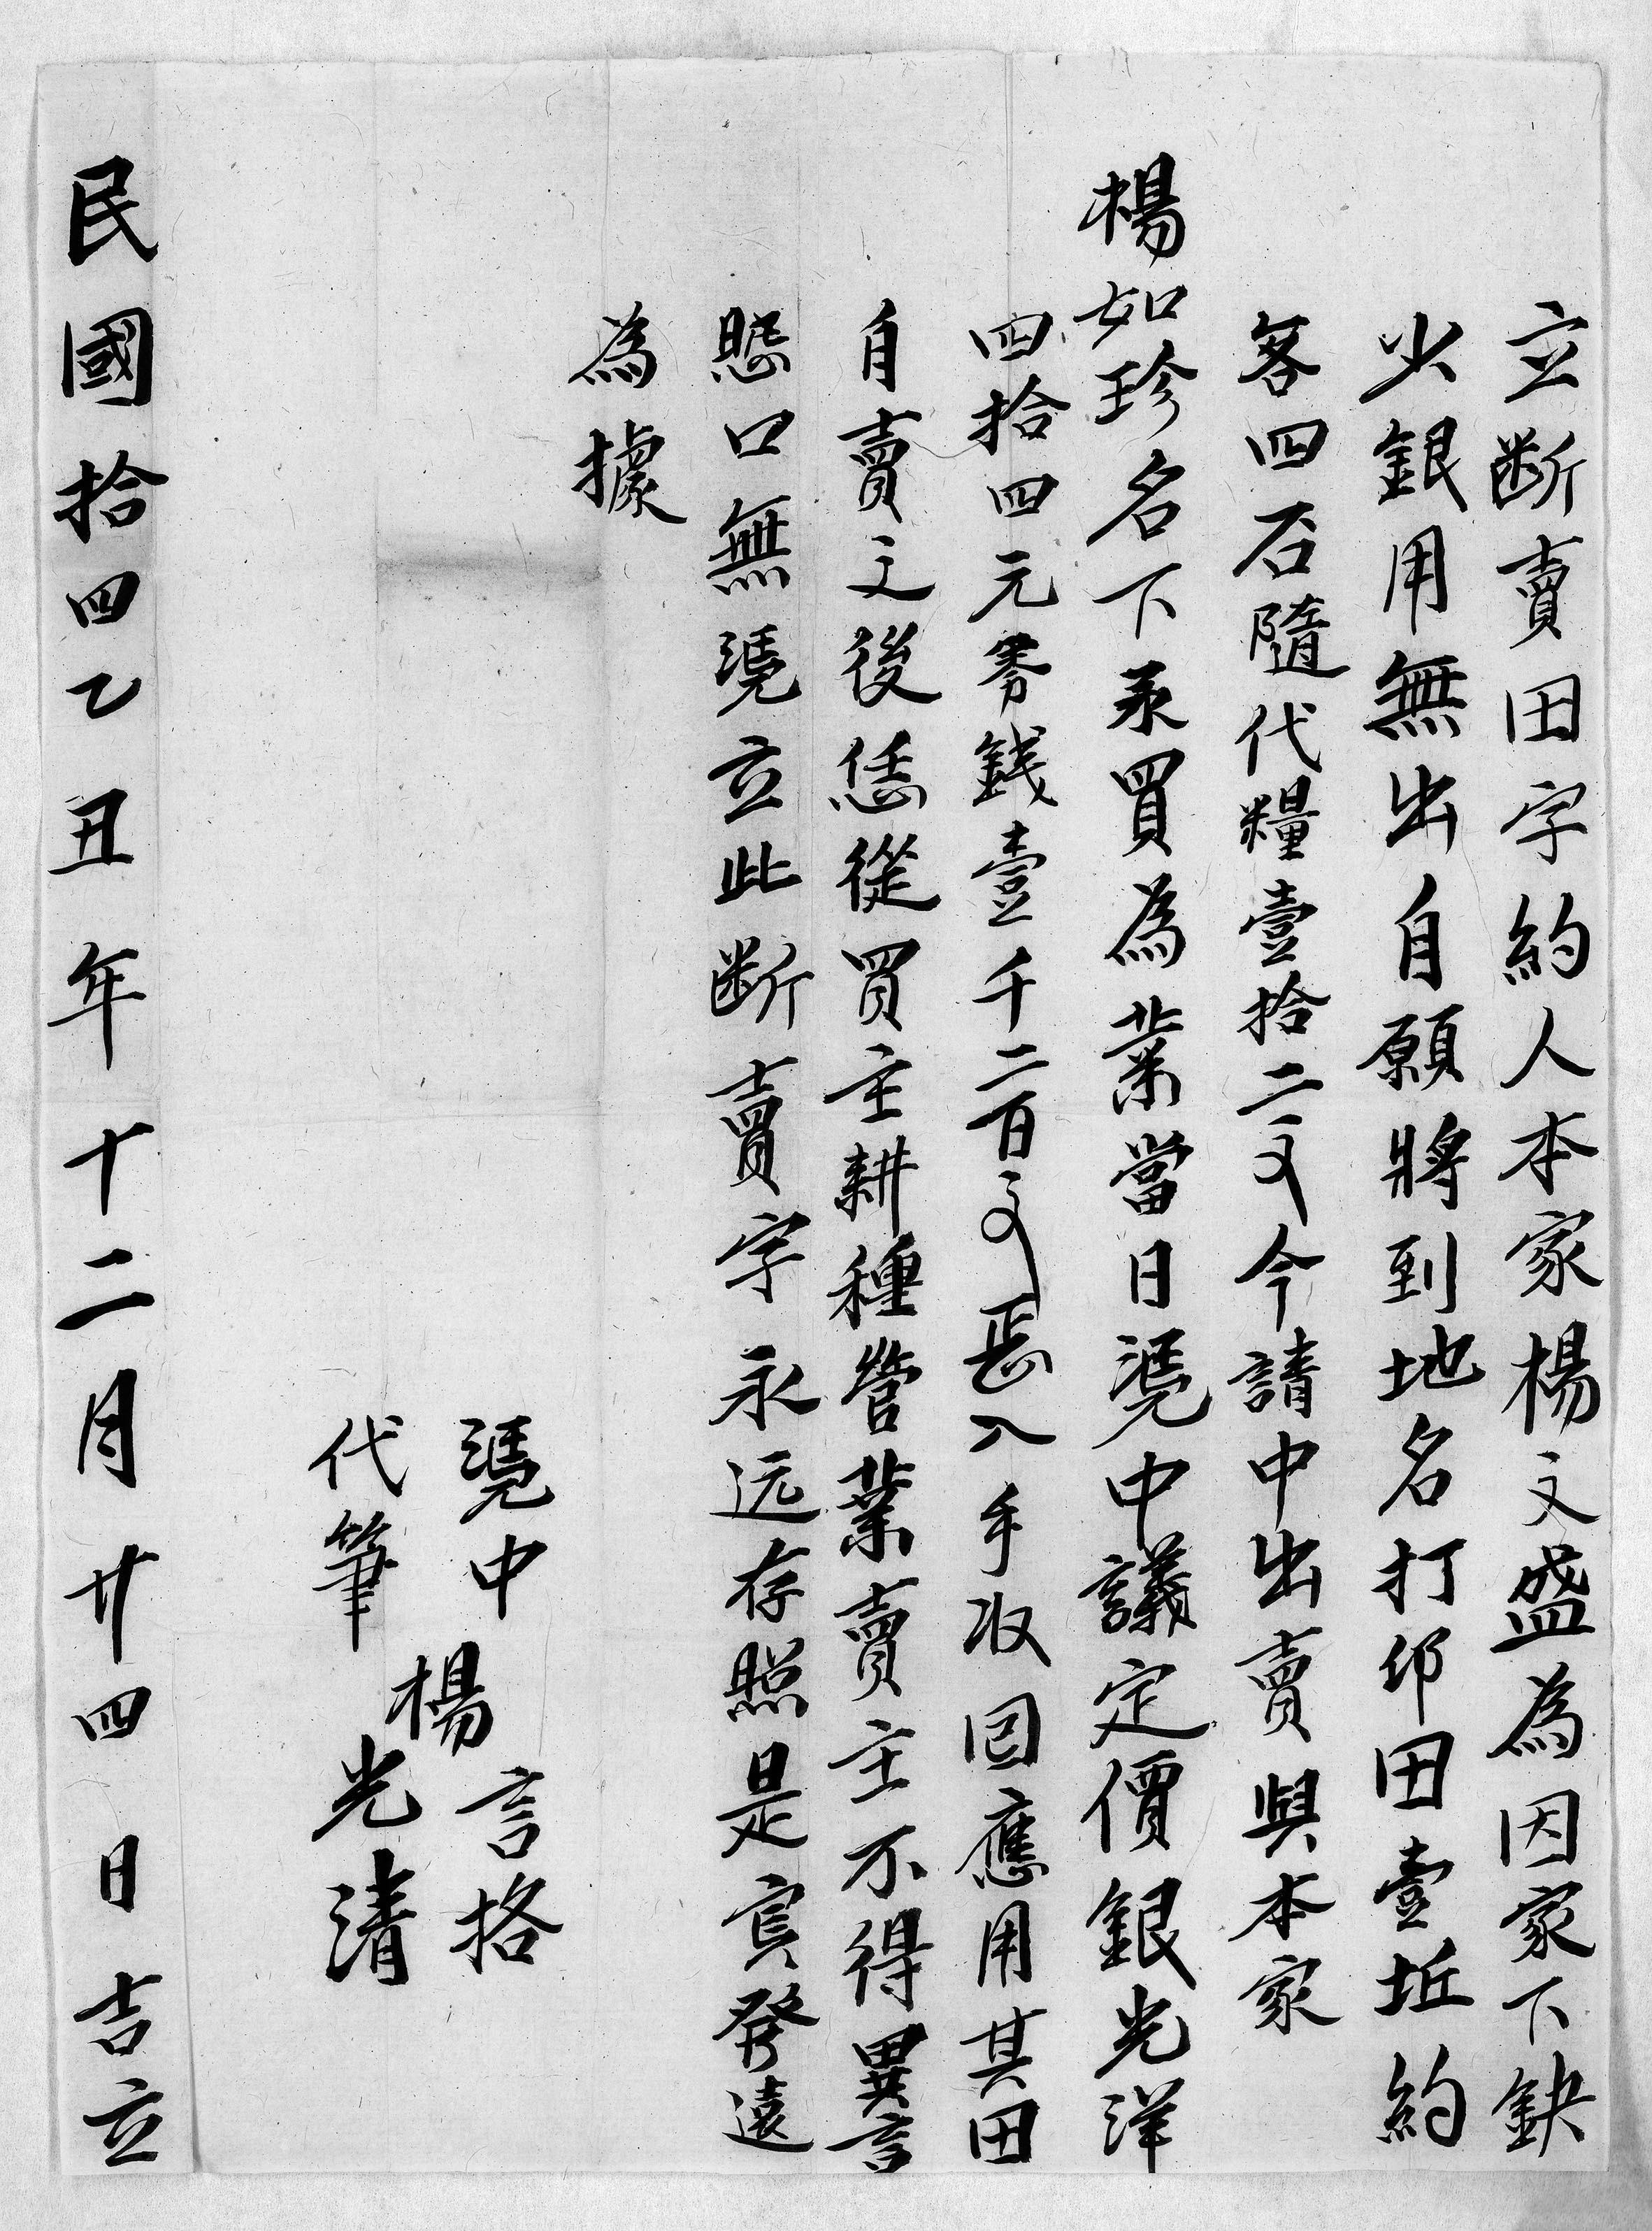 立断賣田字約人本家楊文盛為因家下缺
少銀用無出自願將到地名打邜田壹坵約
客四石隨代糧壹拾二文今請中出賣與本家
楊如珍名下永買為業當日凴中議定價銀光洋
四拾四元零錢壹千二百文其入手收回應用其田
自賣之後恁從買主耕種营業賣主不得異言
口無凴立此断賣字永远存照是實發遠
為據
凴中
楊言格
代筆
光清
民國拾四乙丑年十二月廿四日吉立